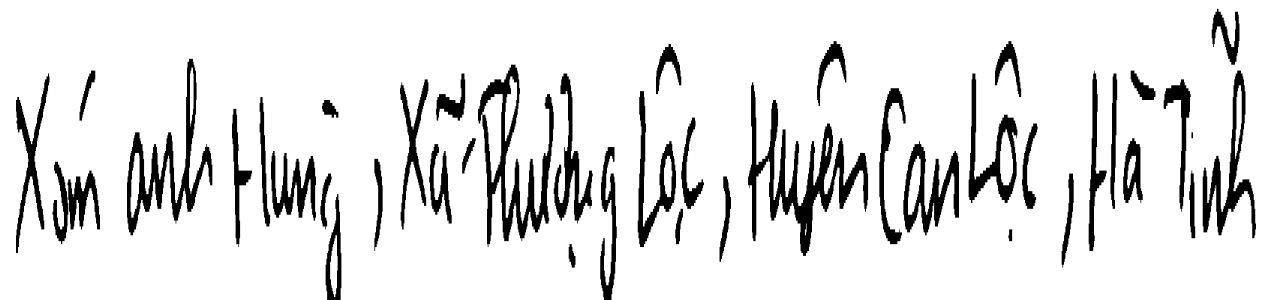 Xóm anh Hùng, Xã Phượng Lộc, Huyện Can Lộc, Hà Tĩnh